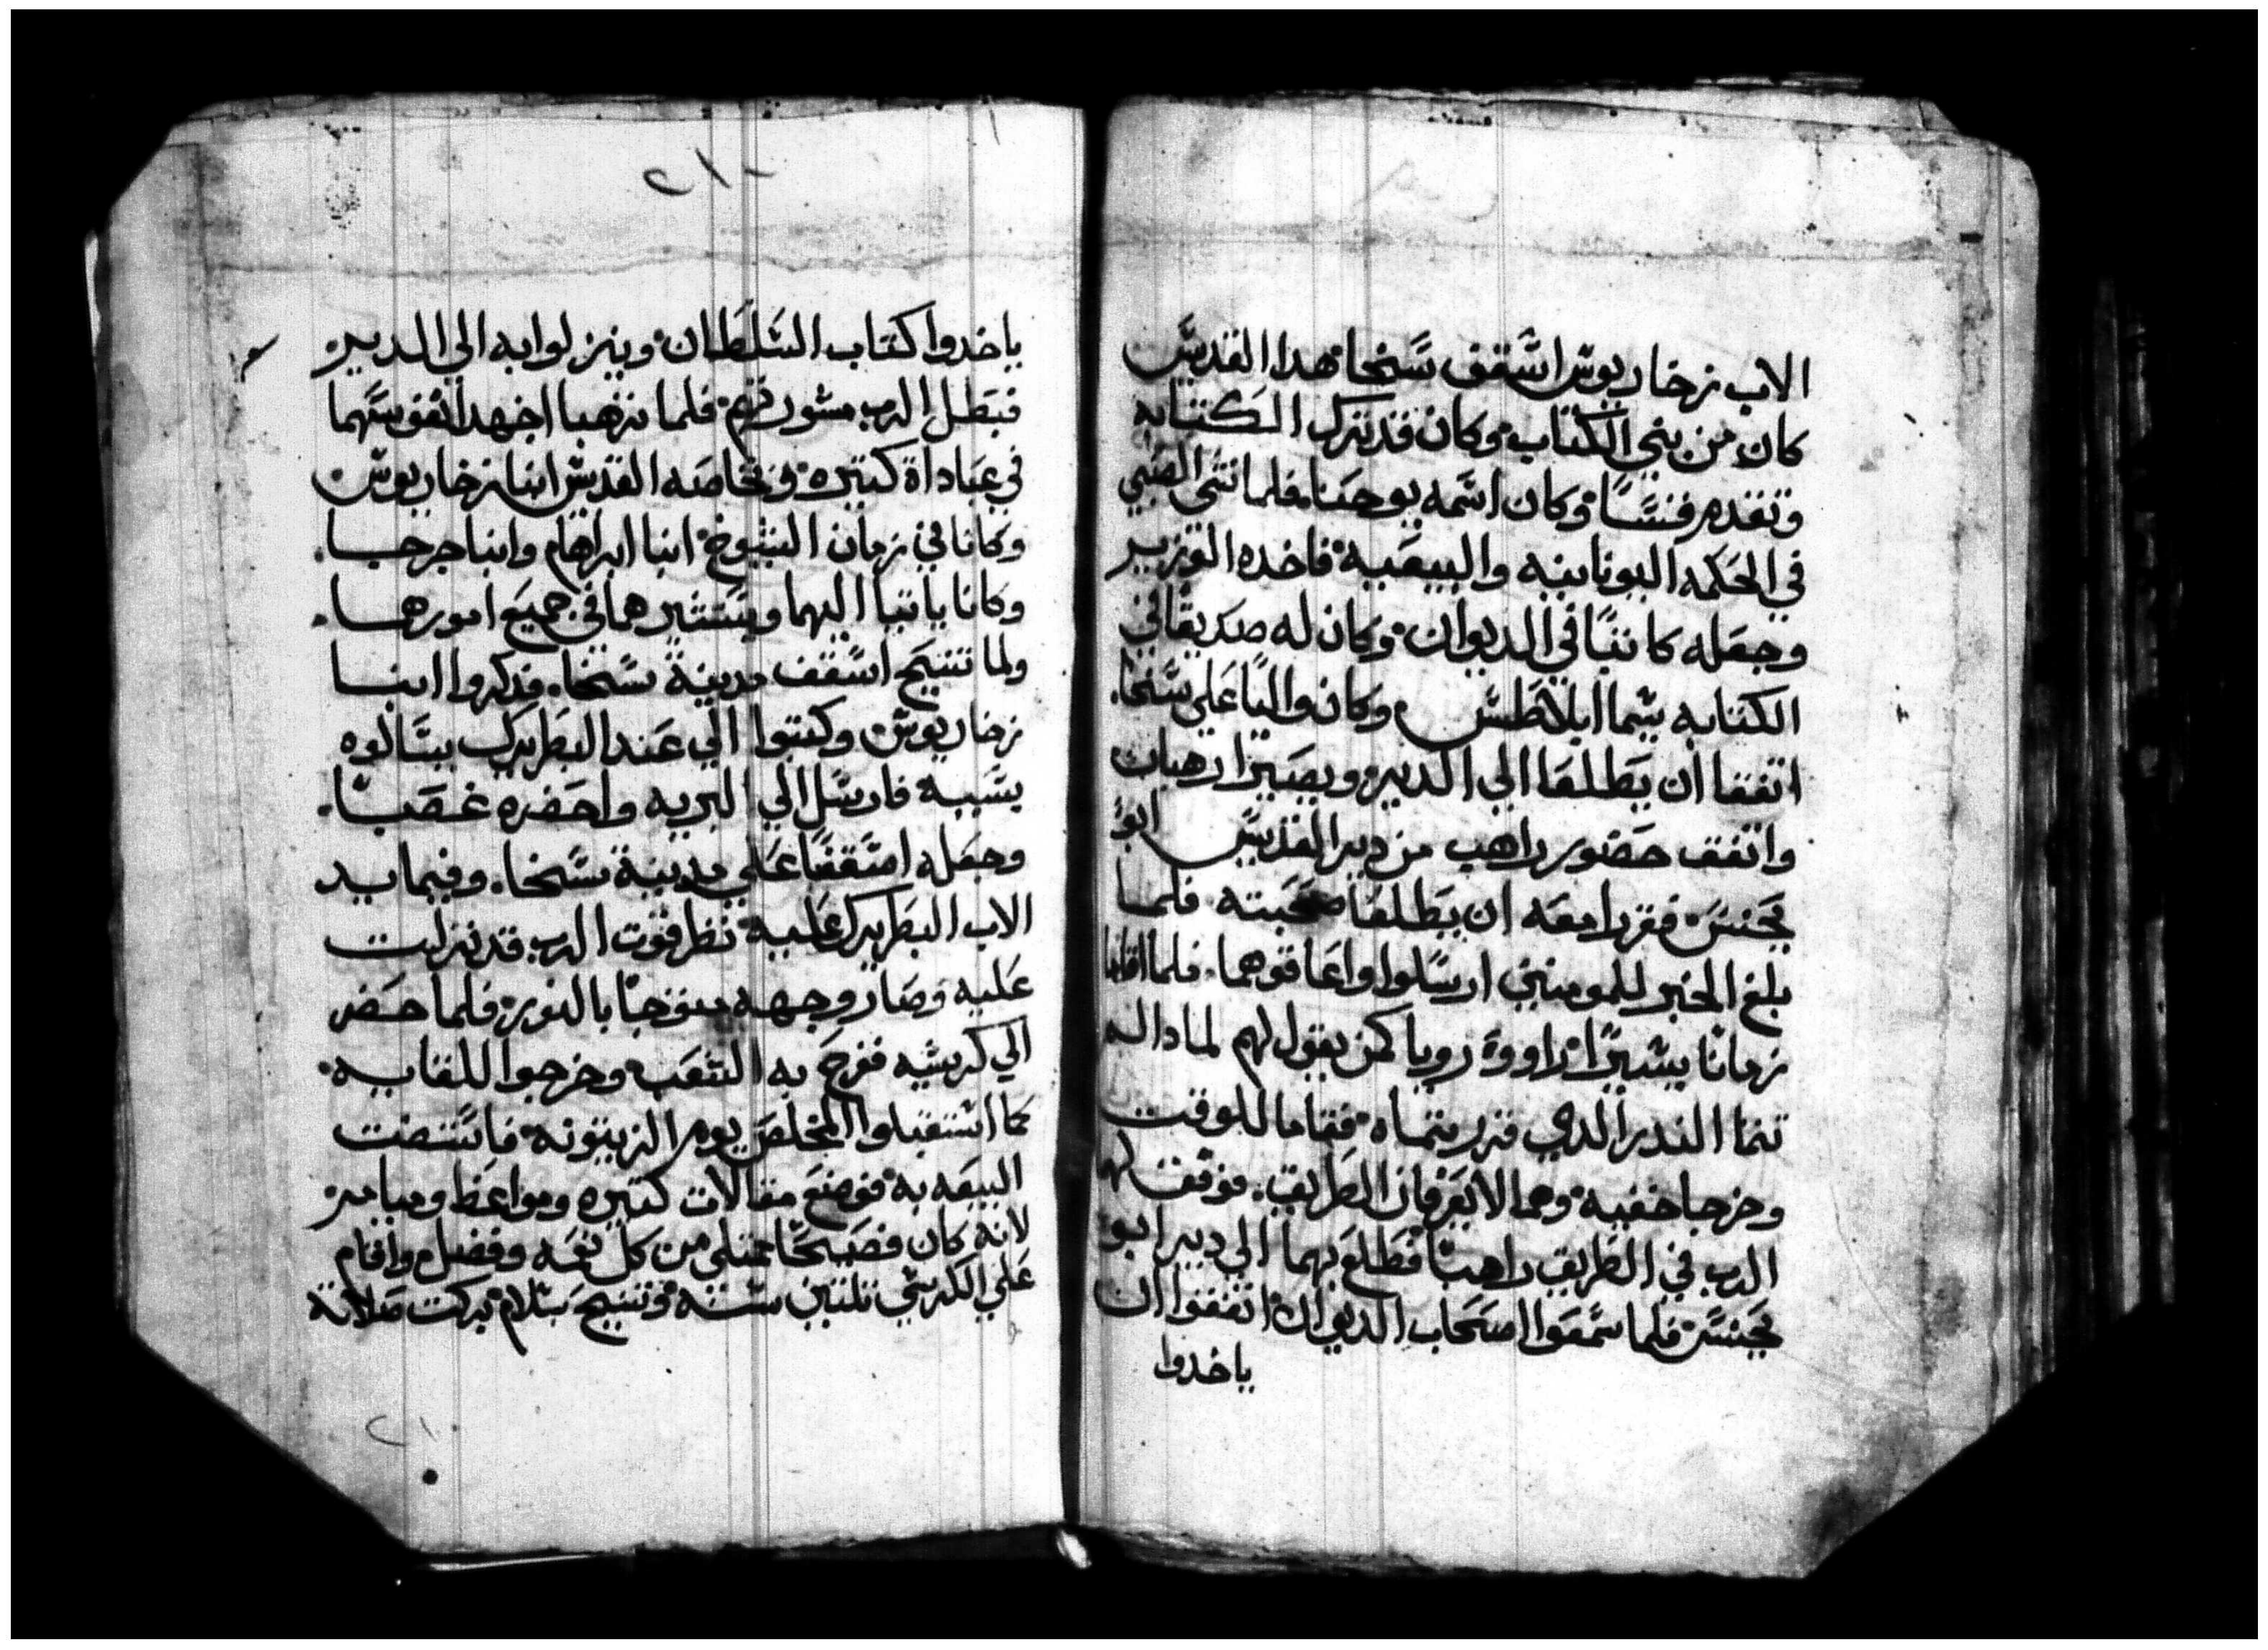 الاب زخاريوس اسقف سخا هدا القديس
كان من بني الكتاب وكان قد ترك الكتابه
وتقدم قسسا وكان اسمه يوحنا فلما انتهى الصبي
في الحكمه اليونانيه والبيعيه فاخده الوزير
وجعله كاتبا في الديوان وكان له صديقا في
الكتابه يسما ابلاطس وكان واليا علي سخا
اتفقا ان يطلعا الي الدير ويصيرا رهبان
واتفق حضور راهب من دير القديس ابو
يحنس فقررا معه ان يطلعا صحبته فلما
بلغ الخبر للمومنين ارسلوا واعاقوهما فلما اقاما
زمانا يسيرا راووا رويا كمن يقول لهم لمادا لم
تتما الندر الدي قررتماه فقاما للوقت
وخرجا خفيه وهما لا يعرفان الطريق فوفق لهم
الرب في الطريق راهبا فطلع بهما الي دير ابو
يحنس فلما سمعوا اصحاب الديوان اتفقوا ان
ياخدوا
٢١٠
ياخدوا كتاب السلطان وينزلوا به الي الدير
فبطل الرب مشورتهم فلما ترهبا اجهدا نفوسهما
في عباداة كتيره وبخاصه القديس انبا زخاريوس
وكانا في زمان الشيوخ انبا ابراهام وانبا جرجا
وكانا ياتيا اليهما ويستشيرهما في جميع امورهما
ولما تنيح اسقف مدينة سخا فدكروا انبا
زخاريوس وكتبوا الي عند البطريرك يسالوه
بسببه فارسل الي البريه واحضره غصبا
وجعله اسقفا علي مدينة سخا وفيما يد
الاب البطريرك عليه نظر قوت الرب قد نزلت
عليه وصار وجهه متوجا بالنور فلما حضر
الي كرسيه ففرح به الشعب وخرجوا للقايه
كما استقبلوا المخلص يوم الزيتونه فاستضت
البيعه به فوضع مقالات كتيره ومواعظ وميامر
لانه كان فصيحا ممتلي من كل نعمه وفضل واقام
علي الكرسي تلتين سنة وتنيح بسلام بركت صلاته